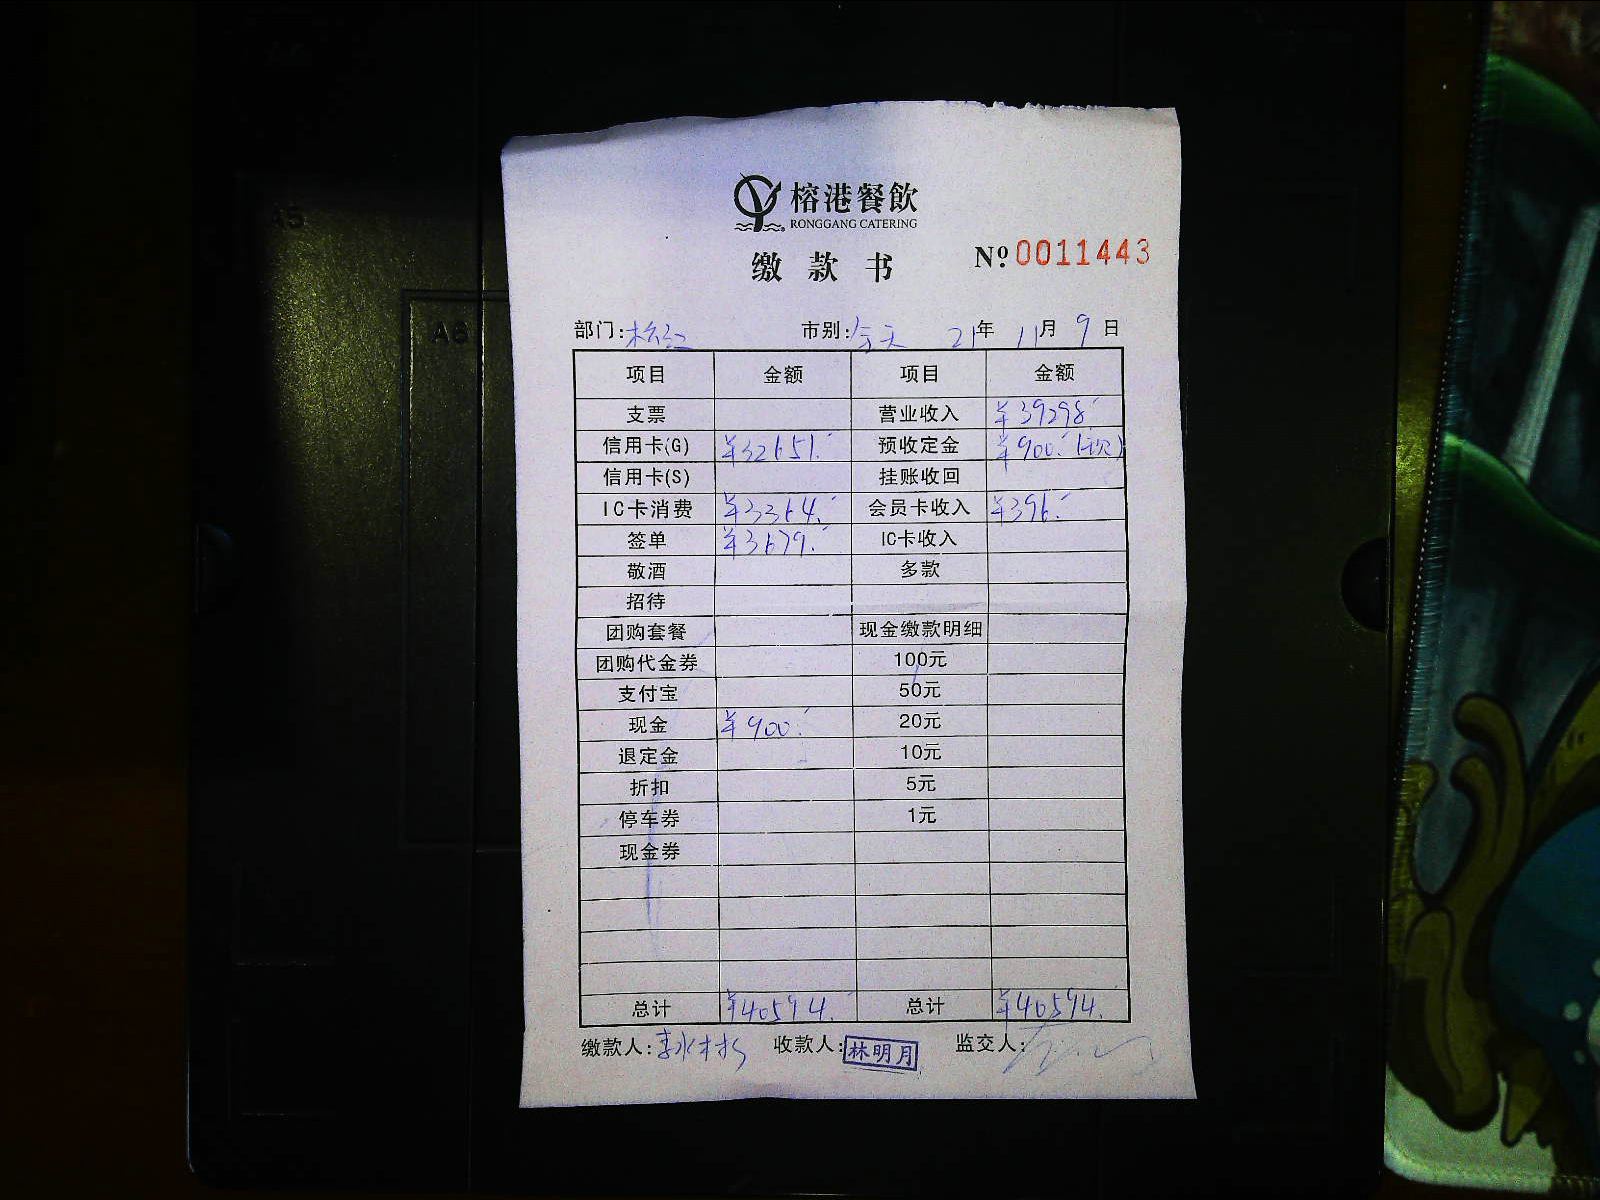 榕港餐飲
RONGGANG CATERING
缴款书 Nº 0011443
部门: 市别:全天 21年 11月 9日
项目 金额 项目 金额
支票 营业收入 ¥39298.-
信用卡(G) ¥32651.- 预收定金 ¥900.-
信用卡(S) 挂账收回
IC卡消费 ¥3364.- 会员卡收入 ¥396.-
签单 ¥3679.- IC卡收入
敬酒 多款
招待
团购套餐 现金缴款明细
团购代金券 100元
支付宝 50元
现金 ¥900.- 20元
退定金 10元
折扣 5元
停车券 1元
现金券
总计 ¥40594.- 总计 ¥40594.
缴款人: 收款人:林明月 监交人:
A5
A6